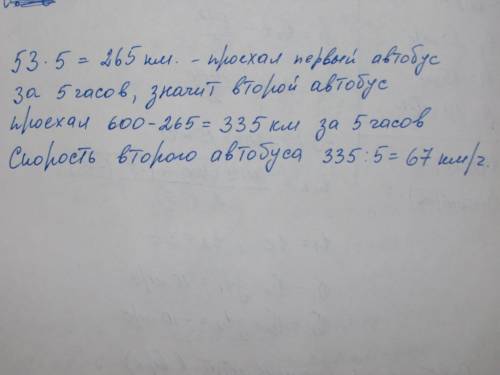 53·5 = 265 км. - проехал первый автобус
за 5 часов, значит второй автобус
проехал 600-265 = 335 км за 5 часов
Скорость второго автобуса 335:5 = 67 км/ч.